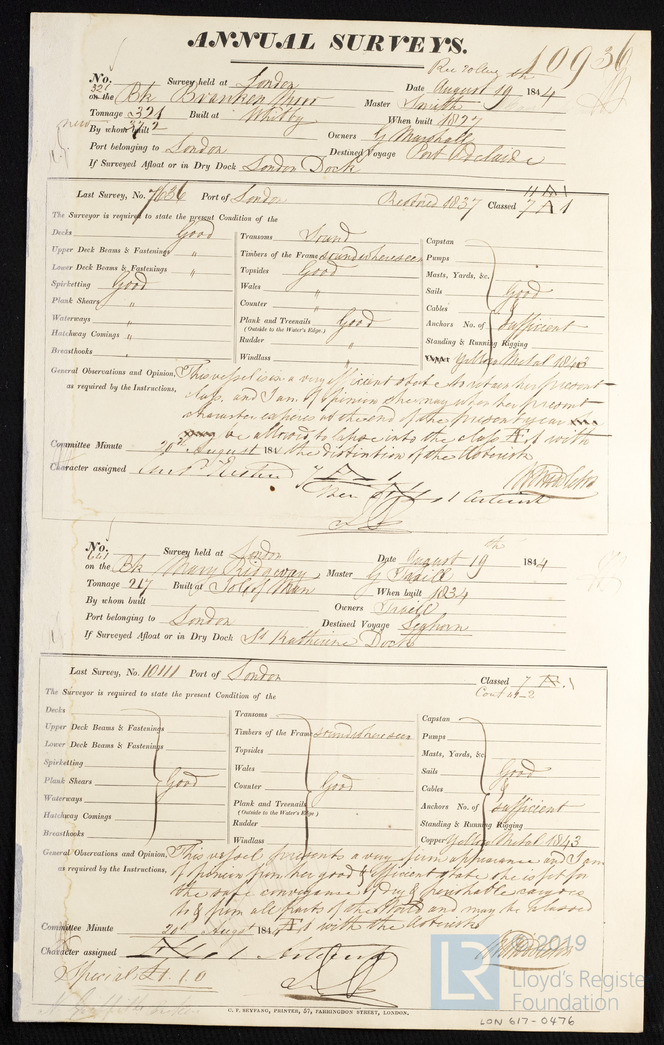 ANNUAL SURVEYS.
10936
Rec 20 Aug
No. 321 Survey held at London Date August 19th 1844
on the Bk Branken Moor Master Smith
Tonnage 321 Built at Whitby When built 1827
new 372
By whom built Owners G Marshall
Port belonging to London Destined Voyage Port Adelaide
If Surveyed Afloat or in Dry Dock London Dock
Last Survey, No. 7636 Port of London Restored 1837 Classed 7 Æ 1
The Surveyor is required to state the present Condition of the
Decks Good
Upper Deck Beams & Fastenings "
Lower Deck Beams & Fastenings "
Spirketting Good
Plank Shears "
Waterways "
Hatchway Comings "
Breasthooks "
Transoms Sound
Timbers of the Frame sound where seen
Topsides Good
Wales "
Counter "
Plank and Treenails Good
(Outside to the Water's Edge.)
Rudder "
Windlass "
Capstan
Pumps
Masts, Yards, &c.
Sails Good
Cables &
Anchors No. of sufficient
Standing & Running Rigging
Yellow Metal 1843
General Observations and Opinion, This vessel is in a very efficient state to retain her present
as required by the Instructions, class, and I am of opinion she may when her present
character expires at the end of the present year
be allowed to lapse into the class Æ 1 with
Committee Minute 20th August 184 the distinction of the Asterisk
Character assigned
Then Æ 1 Asterisk
No. 661 Survey held at London Date August 19th 1844
on the Bk Mary Ridgway Master G Traill
Tonnage 217 Built at Isle of Man When built 1834
By whom built Owners Traill
Port belonging to London Destined Voyage Leghorn
If Surveyed Afloat or in Dry Dock St Katherine Dock
Last Survey, No. 10111 Port of London Classed 7 Æ 1
Cont 41-2
The Surveyor is required to state the present Condition of the
Decks
Upper Deck Beams & Fastenings
Lower Deck Beams & Fastenings
Spirketting
Plank Shears Good
Waterways
Hatchway Comings
Breasthooks
Transoms
Timbers of the Frame sound where seen
Topsides
Wales
Counter Good
Plank and Treenails
(Outside to the Water's Edge.)
Rudder
Windlass
Capstan
Pumps
Masts, Yards, &c.
Sails Good
Cables &
Anchors No. of sufficient
Standing & Running Rigging
Copper Yellow Metal 1843
General Observations and Opinion, This vessel presents a very firm appearance and I am
as required by the Instructions, of opinion from her good & efficient state she is fit for
the safe conveyance of dry & perishable cargoes
to & from all parts of the World and may be classed
Committee Minute 20th August 1844 Æ 1 with the Asterisk
Character assigned Æ 1 Asterisk
Special £1.1.0
C. F. SEYFANG, PRINTER, 57, FARRINGDON STREET, LONDON.
LR © 2019
Lloyd's Register
Foundation
LON 617-0476